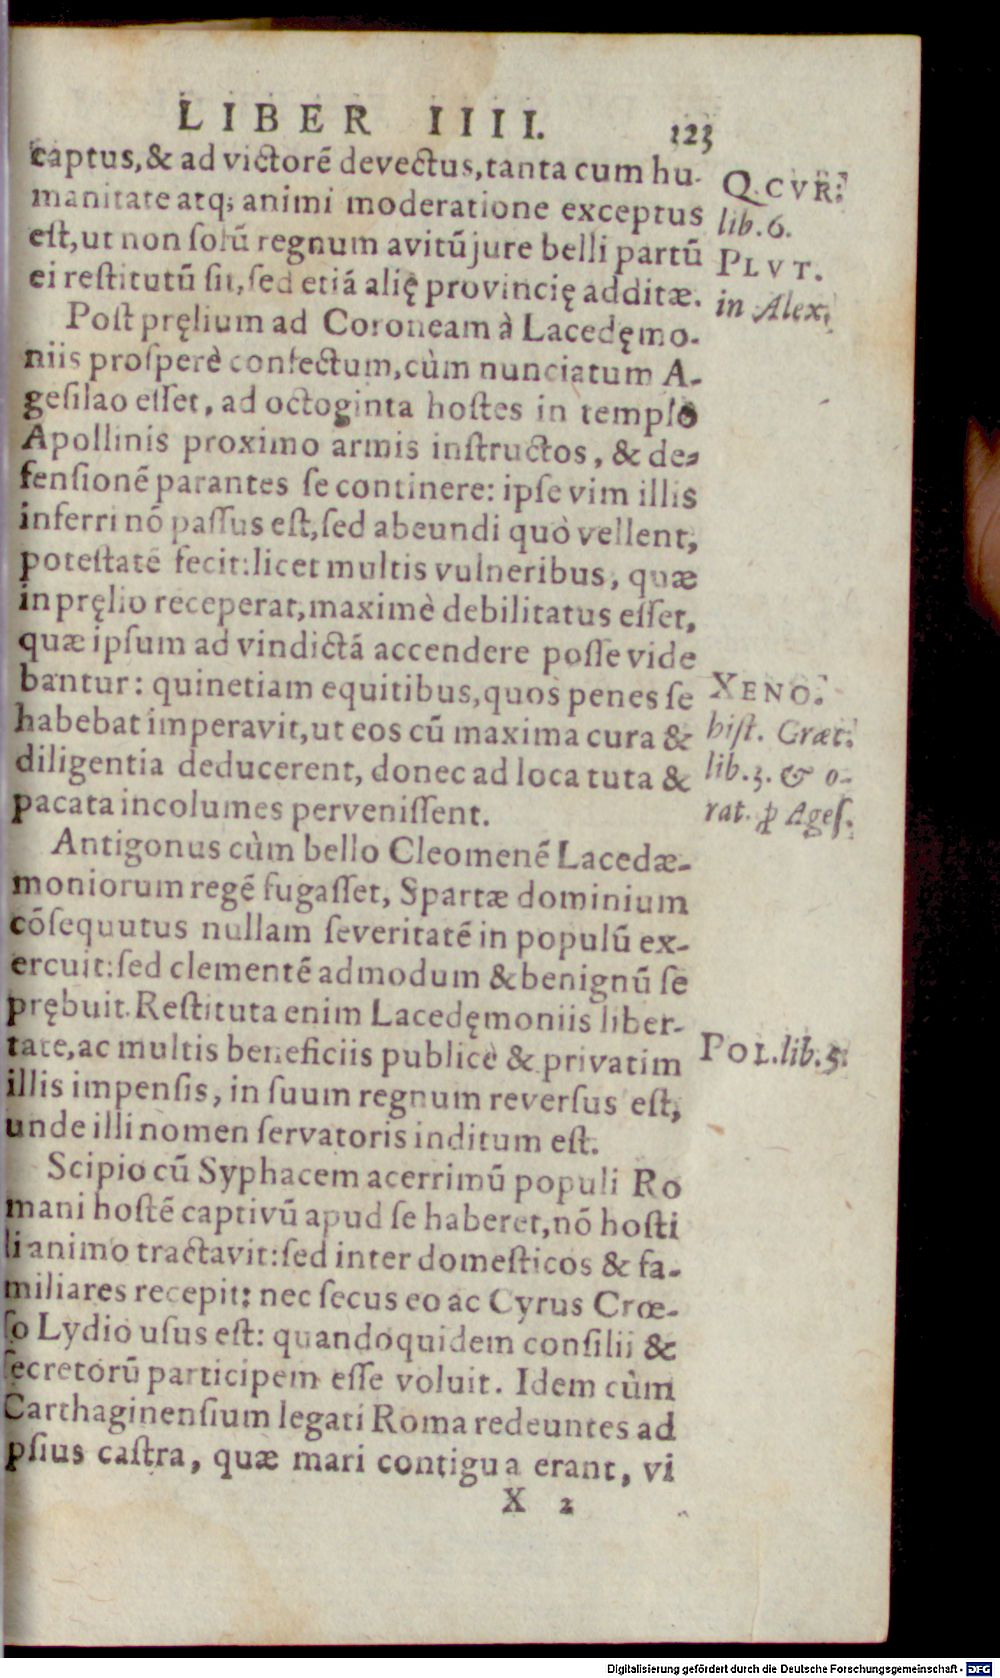 LIBER IIII. 123
captus, & ad victorē devectus, tanta cum hu-
manitate atq; animi moderatione exceptus
est, ut non solū regnum avitū jure belli partū
ei restitutū sit, sed etiā alię provincię additæ.
Q. CVR.
lib. 6.
PLVT.
in Alex.
Post pręlium ad Coroneam à Lacedęmo-
niis prosperè confectum, cùm nunciatum A-
gesilao esset, ad octoginta hostes in templo
Apollinis proximo armis instructos, & de-
fensionē parantes se continere: ipse vim illis
inferri nō passus est, sed abeundi quò vellent,
potestatē fecit: licet multis vulneribus, quæ
in pręlio receperat, maximè debilitatus esset,
quæ ipsum ad vindictā accendere posse vide
bantur: quinetiam equitibus, quos penes se
habebat imperavit, ut eos cū maxima cura &
diligentia deducerent, donec ad loca tuta &
pacata incolumes pervenissent.
XENO.
hist. Græc.
lib. 3. & o-
rat. ꝓ Ages.
Antigonus cùm bello Cleomenē Lacedæ-
moniorum regē fugasset, Spartæ dominium
cōsequutus nullam severitatē in populū ex-
ercuit: sed clementē admodum & benignū se
prębuit. Restituta enim Lacedęmoniis liber-
tate, ac multis beneficiis publicè & privatim
illis impensis, in suum regnum reversus est,
unde illi nomen servatoris inditum est.
POL. lib. 5.
Scipio cū Syphacem acerrimū populi Ro
mani hostē captivū apud se haberet, nō hosti
li animo tractavit: sed inter domesticos & fa-
miliares recepit: nec secus eo ac Cyrus Crœ-
so Lydio usus est: quandoquidem consilii &
secretorū participem esse voluit. Idem cùm
Carthaginensium legati Roma redeuntes ad
psius castra, quæ mari contigua erant, vi
X 2
Digitalisierung gefördert durch die Deutsche Forschungsgemeinschaft - DFG